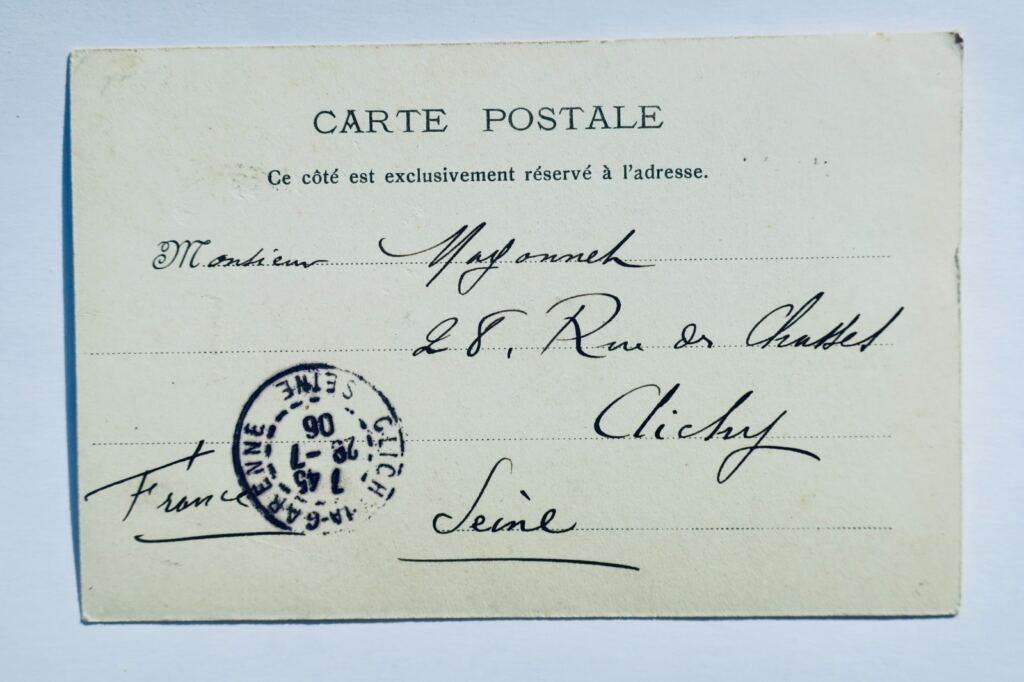 CARTE POSTALE
Ce côté est exclusivement réservé à l'adresse.
Monsieur Mayonneh
28, Rue des Chasses
Clichy
France
Seine
CLICHY-LA-GARENNE SEINE
7 45
29 - 7
06